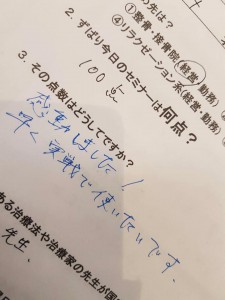 の先は?
①整骨・接骨院(経営・勤務)
④リラクゼーション系(経営・勤務)
2. ずばり今日のセミナーは何点?
100点
3. その点数はどうしてですか?
感動しました!
早く実戦で使いたいです。
ある治療法や治療家の先生が
先生、